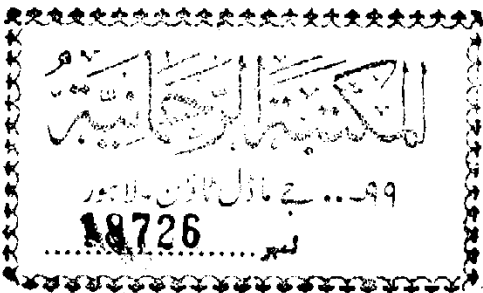 المكتبة الرحمانية
۹۹... جے ماڈل ٹاؤن ۔ لاہور
نمبر ..............18726